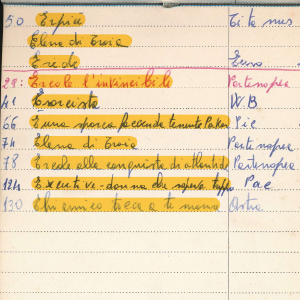 50 Erpice Titanus
Elena di Troia
Erode Euro
29: Ercole l'invincibile Partenopea
41 Esorcista W B
66 È una sporca faccenda tenente Pic
74 Elena di Troia Partenopea
78 Ercole alla conquista di atlantide Partenopea
124 Executive-donna che sapeva troppo Pac
130 E un amico tocca a te Astra